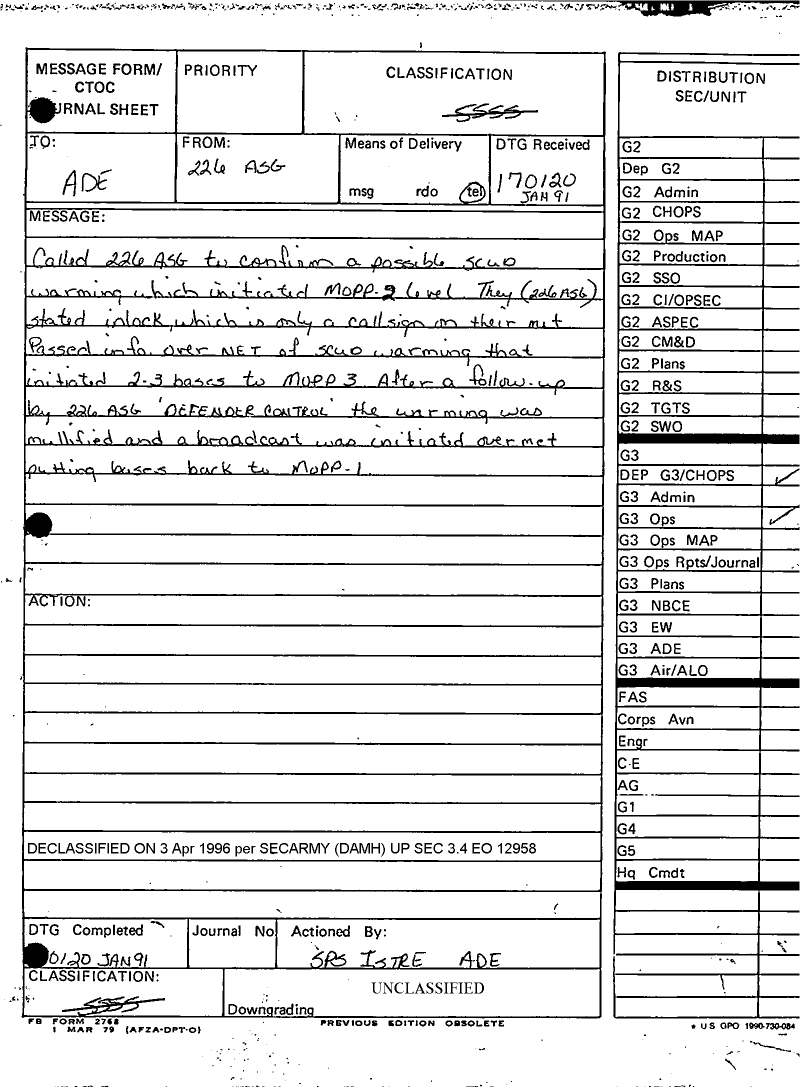 MESSAGE FORM/
CTOC
URNAL SHEET
PRIORITY
CLASSIFICATION
SSSS
DISTRIBUTION
SEC/UNIT
TO:
ADE
FROM:
226 ASG
Means of Delivery
msg rdo tel
DTG Received
170120
JAN 91
MESSAGE:
Called 226 ASG to confirm a possible scud
warning which initiated MOPP-2 level. They (226 ASG)
stated inlock, which is only a callsign on their net
Passed info. over NET of scud warning that
initiated 2-3 bases to MOPP 3. After a follow-up
by 226 ASG 'DEFENDER CONTROL' the warning was
nullified and a broadcast was initiated over net
putting bases back to MOPP-1.
ACTION:
DECLASSIFIED ON 3 Apr 1996 per SECARMY (DAMH) UP SEC 3.4 EO 12958
DTG Completed
0120 JAN 91
Journal No
Actioned By:
ISTRE ADE
CLASSIFICATION:
SSSS
UNCLASSIFIED
Downgrading
FB FORM 2768
1 MAR 79 (AFZA-DPT-O)
PREVIOUS EDITION OBSOLETE
G2
Dep G2
G2 Admin
G2 CHOPS
G2 Ops MAP
G2 Production
G2 SSO
G2 CI/OPSEC
G2 ASPEC
G2 CM&D
G2 Plans
G2 R&S
G2 TGTS
G2 SWO
G3
DEP G3/CHOPS
G3 Admin
G3 Ops
G3 Ops MAP
G3 Ops Rpts/Journal
G3 Plans
G3 NBCE
G3 EW
G3 ADE
G3 Air/ALO
FAS
Corps Avn
Engr
C-E
AG
G1
G4
G5
Hq Cmdt
* US GPO 1990-730-084